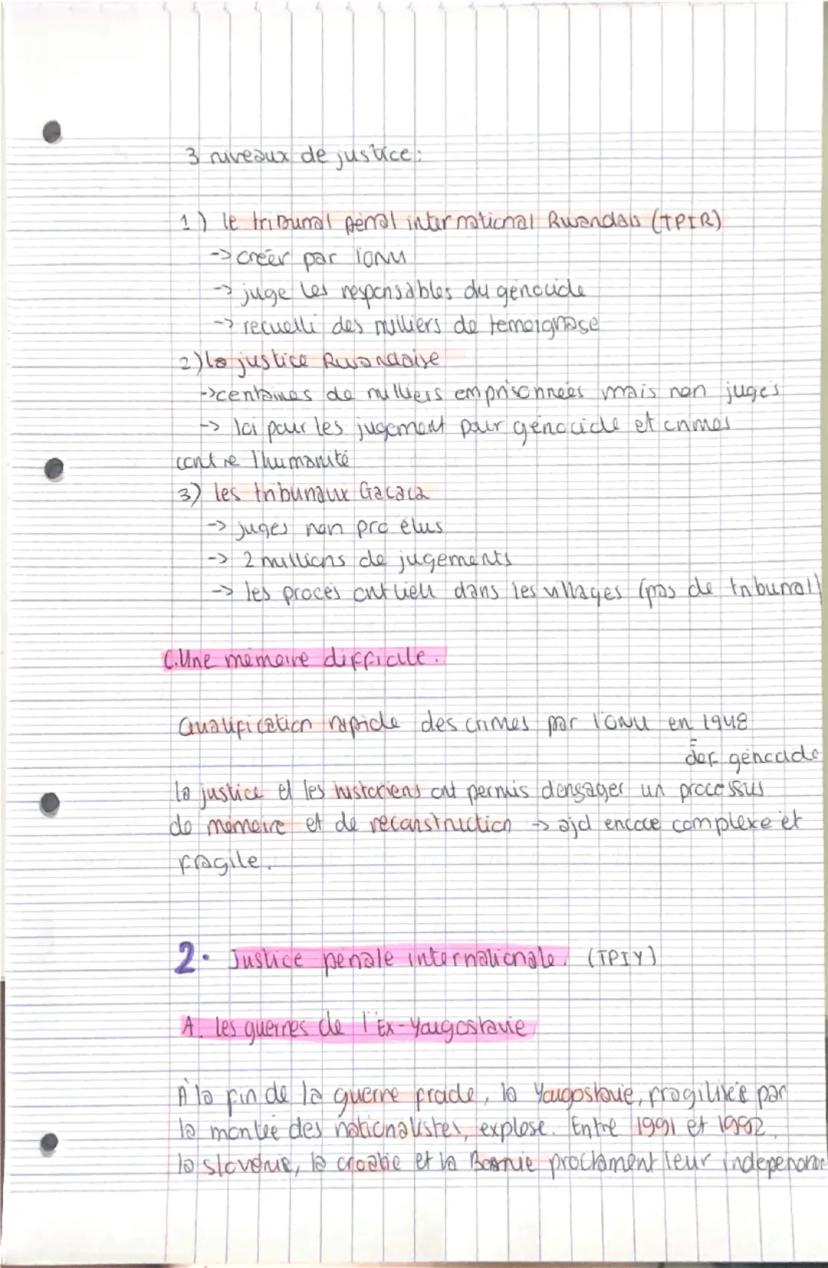 3 niveaux de justice :
1) le tribunal pénal international Rwandais (TPIR)
-> créer par l'ONU
-> juge les responsables du génocide
-> recuelli des milliers de temoignage
2) la justice Rwandaise
-> centaines de milliers emprisonnées mais non jugés
-> loi pour les jugement pour génocide et crimes
contre l'humanité
3) les tribunaux Gacaca
-> juges non pro élus
-> 2 millions de jugements
-> les procès ont lieu dans les villages (pas de tribunal)
C. Une mémoire difficile.
Qualification rapide des crimes par l'ONU en 1948
def génocide
la justice et les historiens ont permis d'engager un processus
de mémoire et de reconstruction -> ajd encore complexe et
fragile.
2. Justice pénale internationale. (TPIY)
A. les guerres de l'Ex-Yougoslavie
À la fin de la guerre froide, la Yougoslavie, fragilisée par
la montée des nationalistes, explose. Entre 1991 et 1992,
la slovénie, la croatie et la Bosnie proclament leur